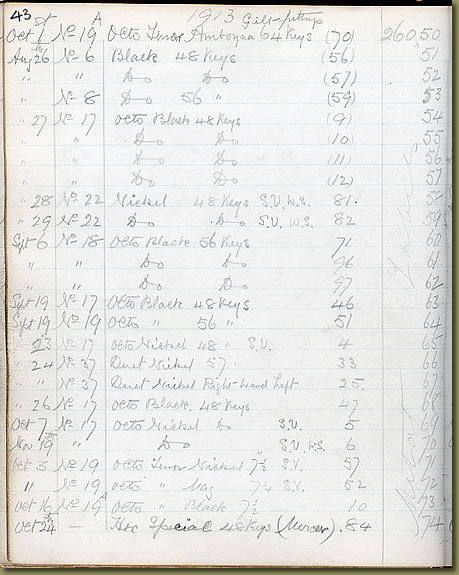 43 1913 Gilt-fittings
Oct 1st No 19 A Octo Tenor Amboyna 64 Keys (70) 26050
Aug 26th No 6 Black 48 Keys (56) 51
" " Do Do (57) 52
" No 8 Do 56 " (59) 53
" 27 No 17 Octo Black 48 Keys (9) 54
" " Do Do (10) 55
" " Do Do (11) 56
" " Do Do (12) 57
" 28 No 22 Nickel 48 Keys S.V. W.S. 81. 58
" 29 No 22 Do Do S.V. W.S. 82 59
Sept 6 No 18 Octo Black 56 Keys 71 60
" " Do Do 96 61
" " Do Do 97 62
Sept 19 No 17 Octo Black 48 Keys 46 63
Sept 19 No 19 Octo " 56 " 51 64
" 23 No 17 Octo Nickel 48 " S.V. 4 65
" 24 No 37 Duet Nickel 57 " 33 66
" " No 37 Duet Nickel Right-hand left 25 67
" 26 No 17 Octo Black 48 Keys 47 68
Oct 7 No 17 Octo Nickel Do S.V. 5 69
Nov 19th " Do S.V. W.S. 6 70
Oct 3 No 19 Octo Tenor Nickel 7½ S.V. 57 71
" No 19 Octo " 7¼ S.V. 52 72
Oct 16th No 19 A Octo " Black 7½ 10 73
Oct 24th — Hrc Special 48 Keys (Mercer). 84 74